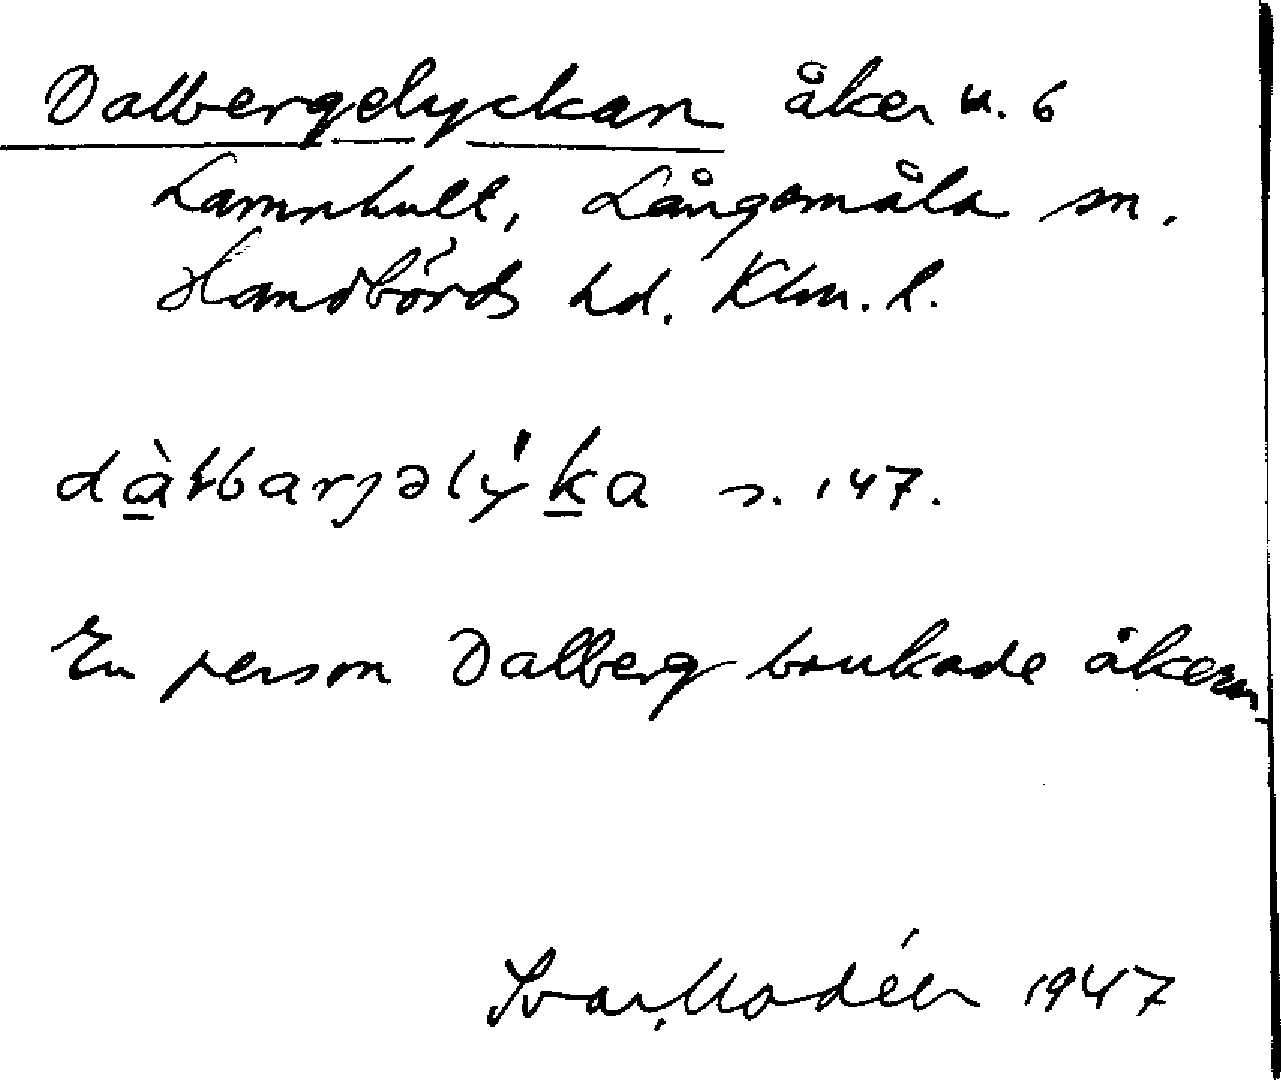 Dalbergelyckan åker u. 6
Lamnhult, Långemåla sn.
Handbörds hd. Klm. l.
dàłbarjəlýka s. 147.
En person Dalberg brukade åkern.
Ivar Modéer 1947